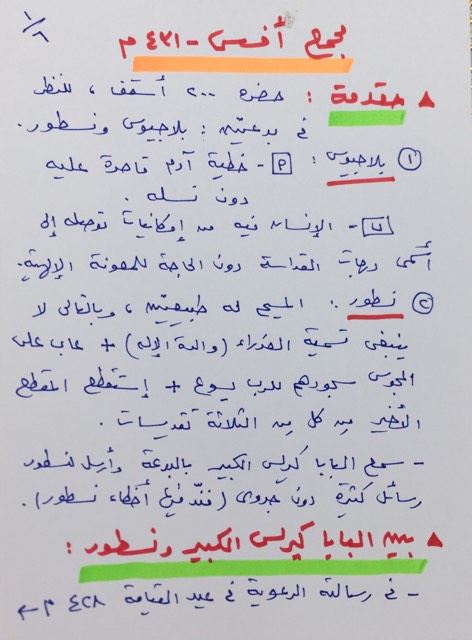 ١/٦
مجمع أفسس - ٤٣١ م
▲ مقدمة : حضره ٢٠٠ أسقف ، للنظر
في بدعتين : بلاجيوس ونسطور .
① بلاجيوس : أ - خطية آدم قاصرة عليه
دون نسله .
ب - الإنسان فيه من إمكانيات توصله إلى
أسمى درجات القداسة دون الحاجة للمعونة الإلهية .
② نسطور : المسيح له طبيعتين ، وبالتالى لا
ينبغى تسمية العذراء ( والدة الإله ) + عاب على
المجوس سجودهم للرب يسوع + إستقطع المقطع
الأخير من كل من الثلاثة تقديسات .
- سمع البابا كيرلس الكبير بالبدعة وأرسل لنسطور
رسائل كثيرة دون جدوى ( فنّد فيها أخطاء نسطور ) .
▲ بين البابا كيرلس الكبير ونسطور :
- فى رسالته الرعوية فى عيد القيامة ٤٢٨ م ←